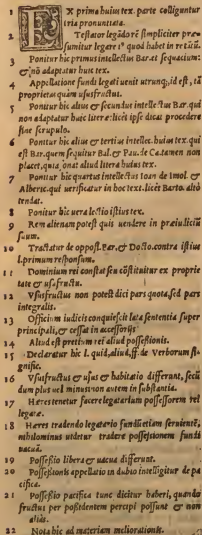 1 EX prima huius tex. parte colliguntur
tria pronuntiata.
2 Testator legãdo rẽ simpliciter præ-
sumitur legare iˢ quod habet in re suũ.
3 Ponitur hic primus intellectus Bar. et sequacium:
& nõ adaptatur huic tex.
4 Appellatione fundi legati uenit utrunq; id est, tã
proprietas quàm ususfructus.
5 Ponitur hic alius & secundus intellectus Bar. qui
non adaptatur huic literæ: licèt ipse dicat procedere
sine scrupulo.
6 Ponitur hic alius & tertius intellec. huius tex. qui
est Bar. quem sequitur Bal. & Pau. de Ca. tamen non
placet, quia õnat aliud litera huius tex.
7 Ponitur hic quartus intellectus Ioan. de Imol. &
Alberic. qui uerificatur in hoc text. licèt Barto. aliò
tendat.
8 Ponitur hic uera lectio istius tex.
9 Rem alienam potest quis uendere in præiudiciũ
suum.
10 Tractatur de opposi. Bar. & Docto. contra istius
l. primum responsum.
11 Dominium rei constat seu cõstituitur ex proprie
tate & usufructu.
12 Vsusfructus non potest dici pars quota, sed pars
integralis.
13 Officium iudicis conquiescit lata sententia super
principali, & cessat in accessorijs
14 Aliud est pretium rei aliud possessionis.
15 Declaratur hic l. quid, aliud, ff. de Verborum si-
gnific.
16 Vsusfructus & usus & habitatio differunt, secũ
dum plus uel minus: non autem in substantia.
17 Hæres tenetur facere legatarium possessorem rei
legatæ.
18 Hæres tradendo legatario fundũ etiam seruientẽ,
nihilominus uidetur tradere possessionem fundi
uacuã.
19 Possessio libera & uacua differunt.
20 Possessionis appellatio in dubio intelligitur de pa
cifica.
21 Possessio pacifica tunc dicitur haberi, quando
fructus per possidentem percipi possunt & non
aliàs.
22 Nota hic ad materiam meliorationis.